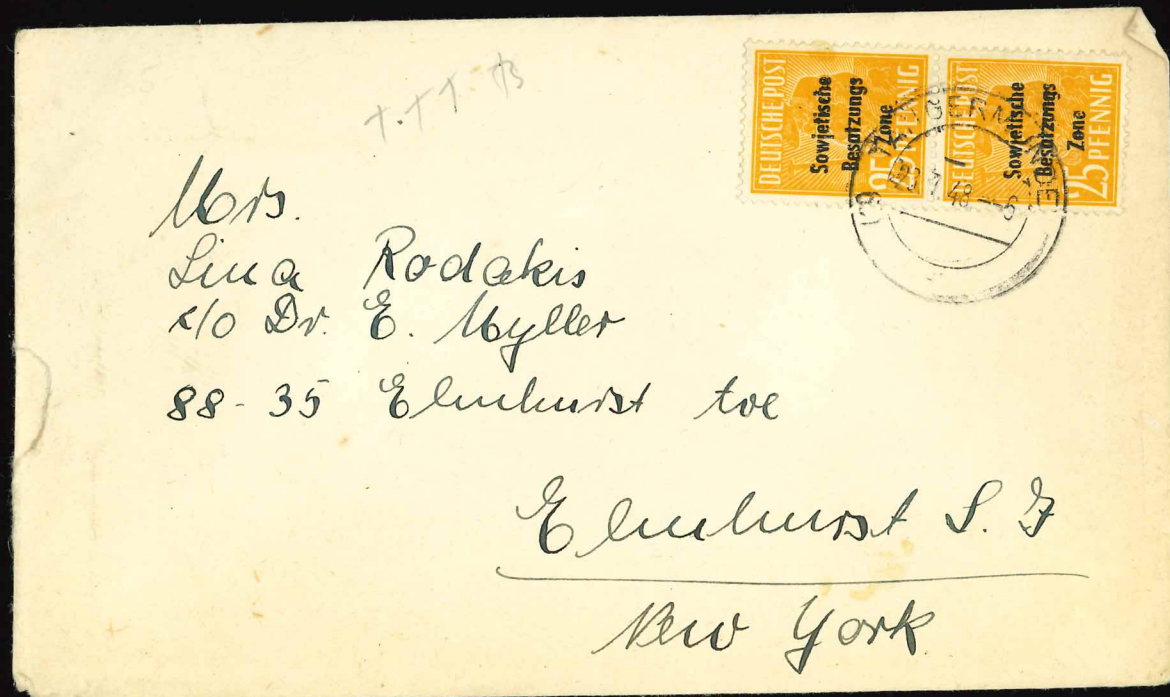 DEUTSCHE POST
Sowjetische
Besatzungs
Zone
25 PFENNIG
DEUTSCHE POST
Sowjetische
Besatzungs
Zone
25 PFENNIG
TANGERMÜNDE
7.48 - 6
Mrs.
Lina Rodakis
c/o Dr. E. Myller
88-35 Elmhurst Ave
Elmhurst L. I
New York